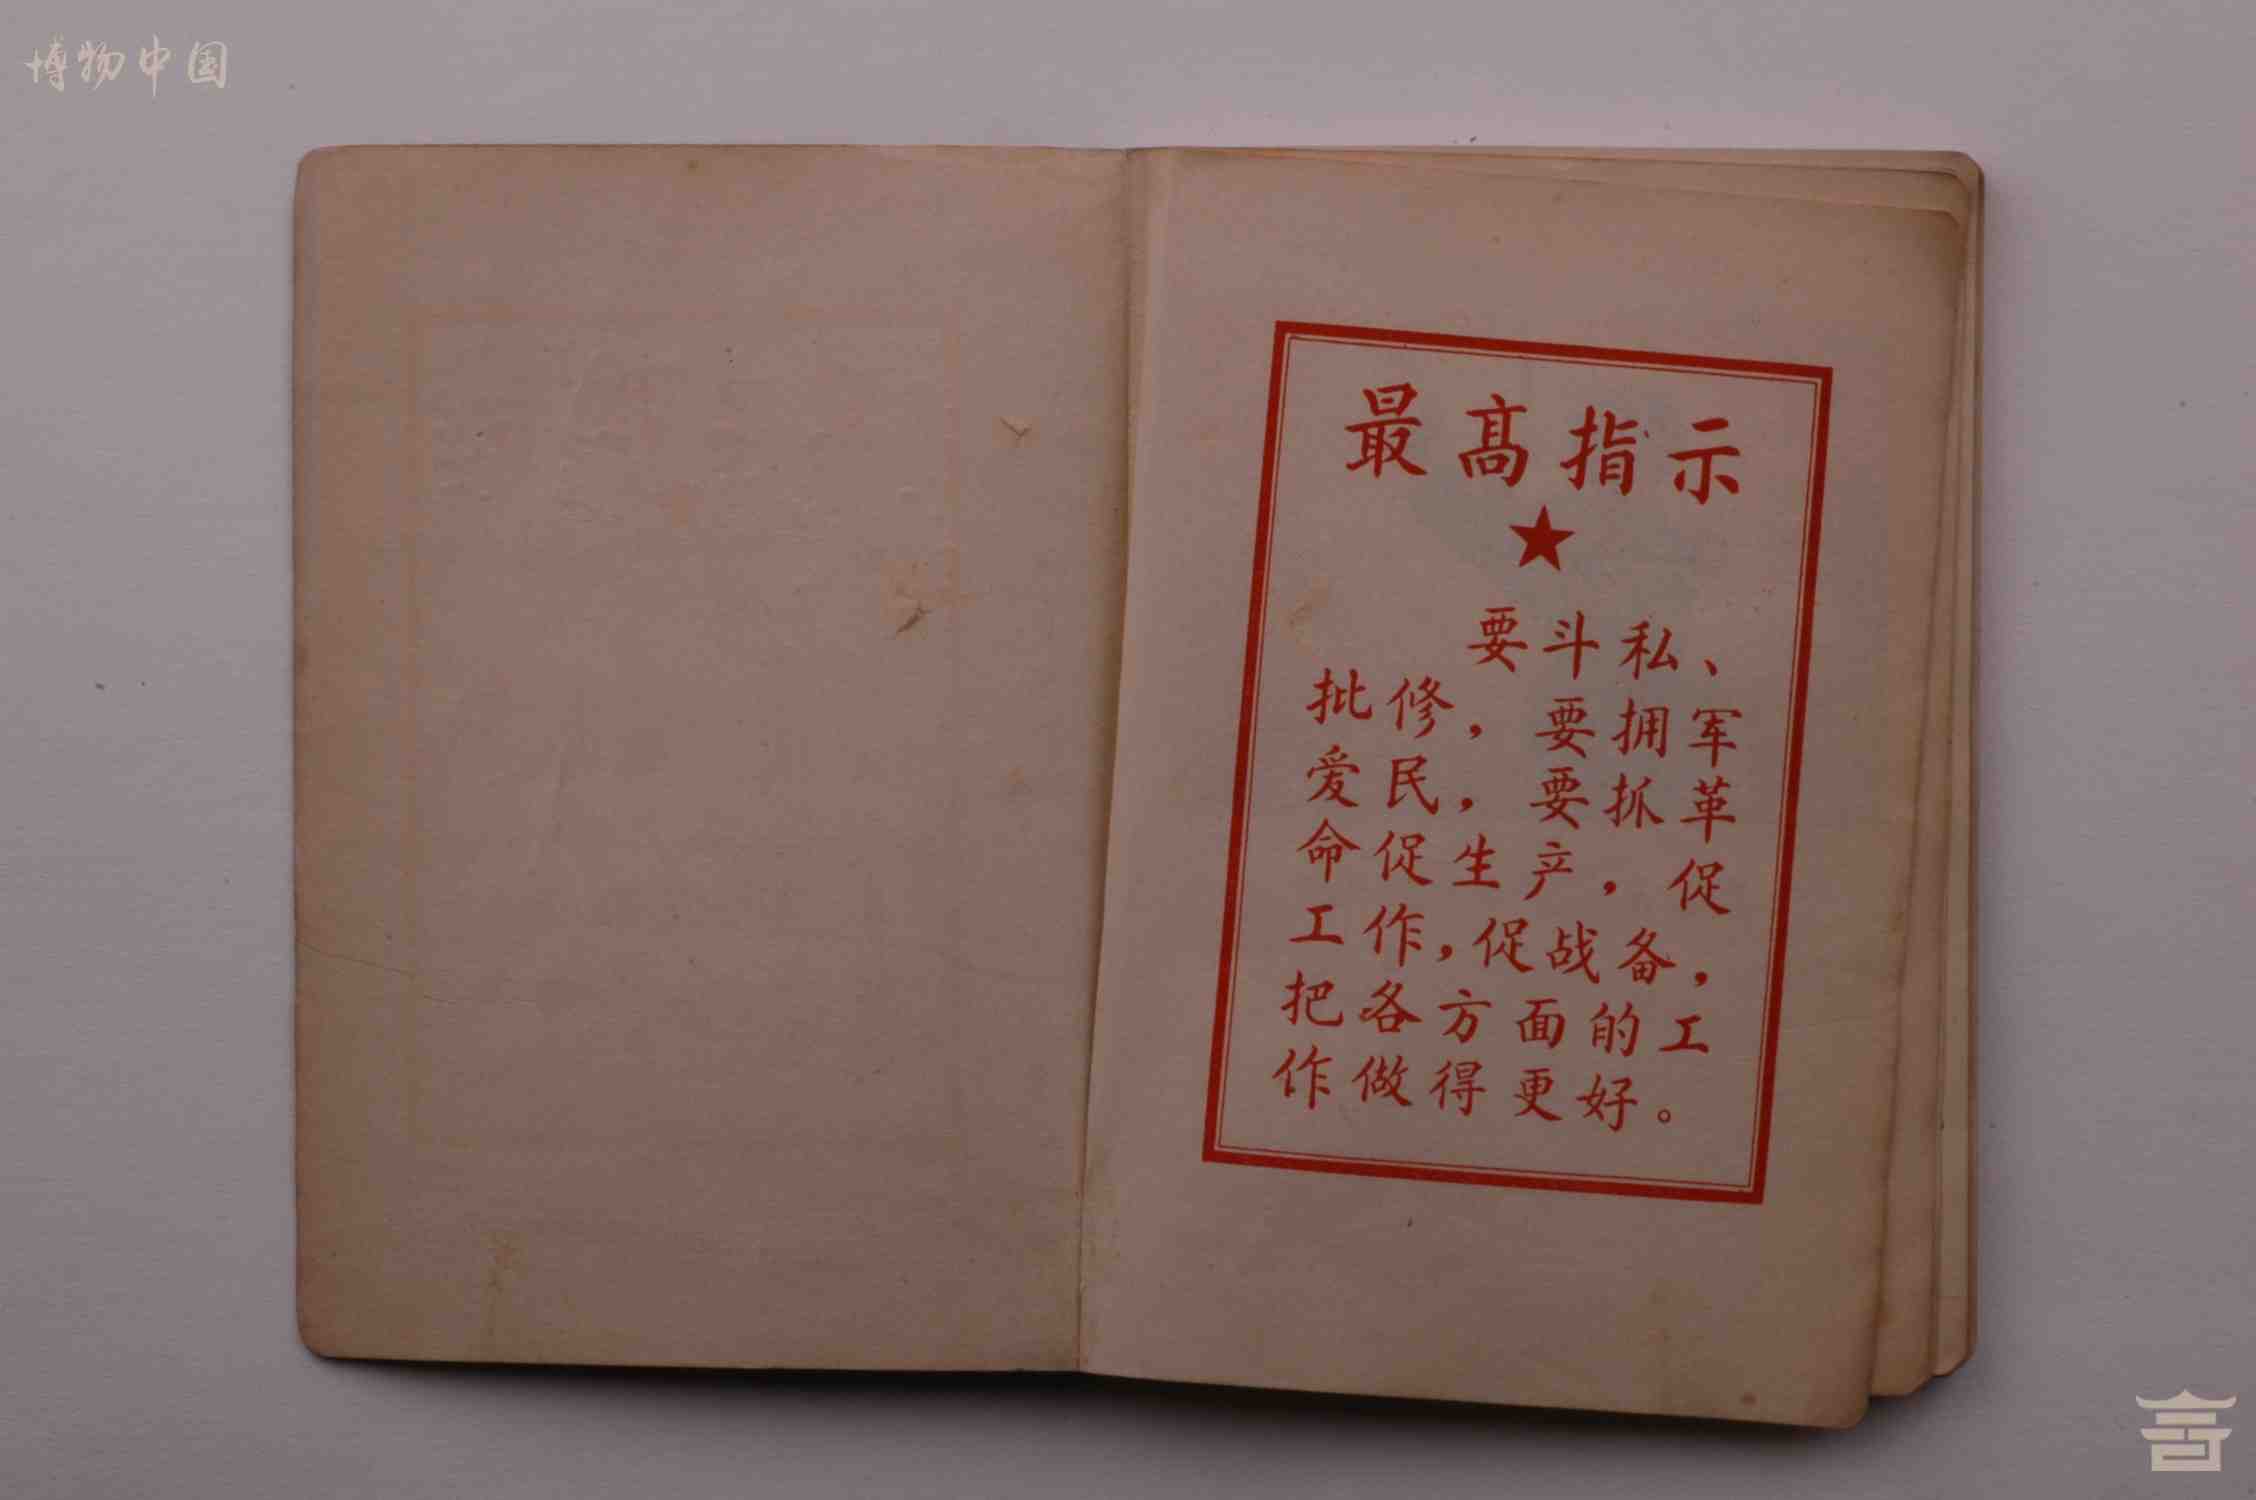 博物中国
最高指示
要斗私、
批修，要拥军
爱民，要抓革
命促生产，促
工作，促战备，
把各方面的工
作做得更好。